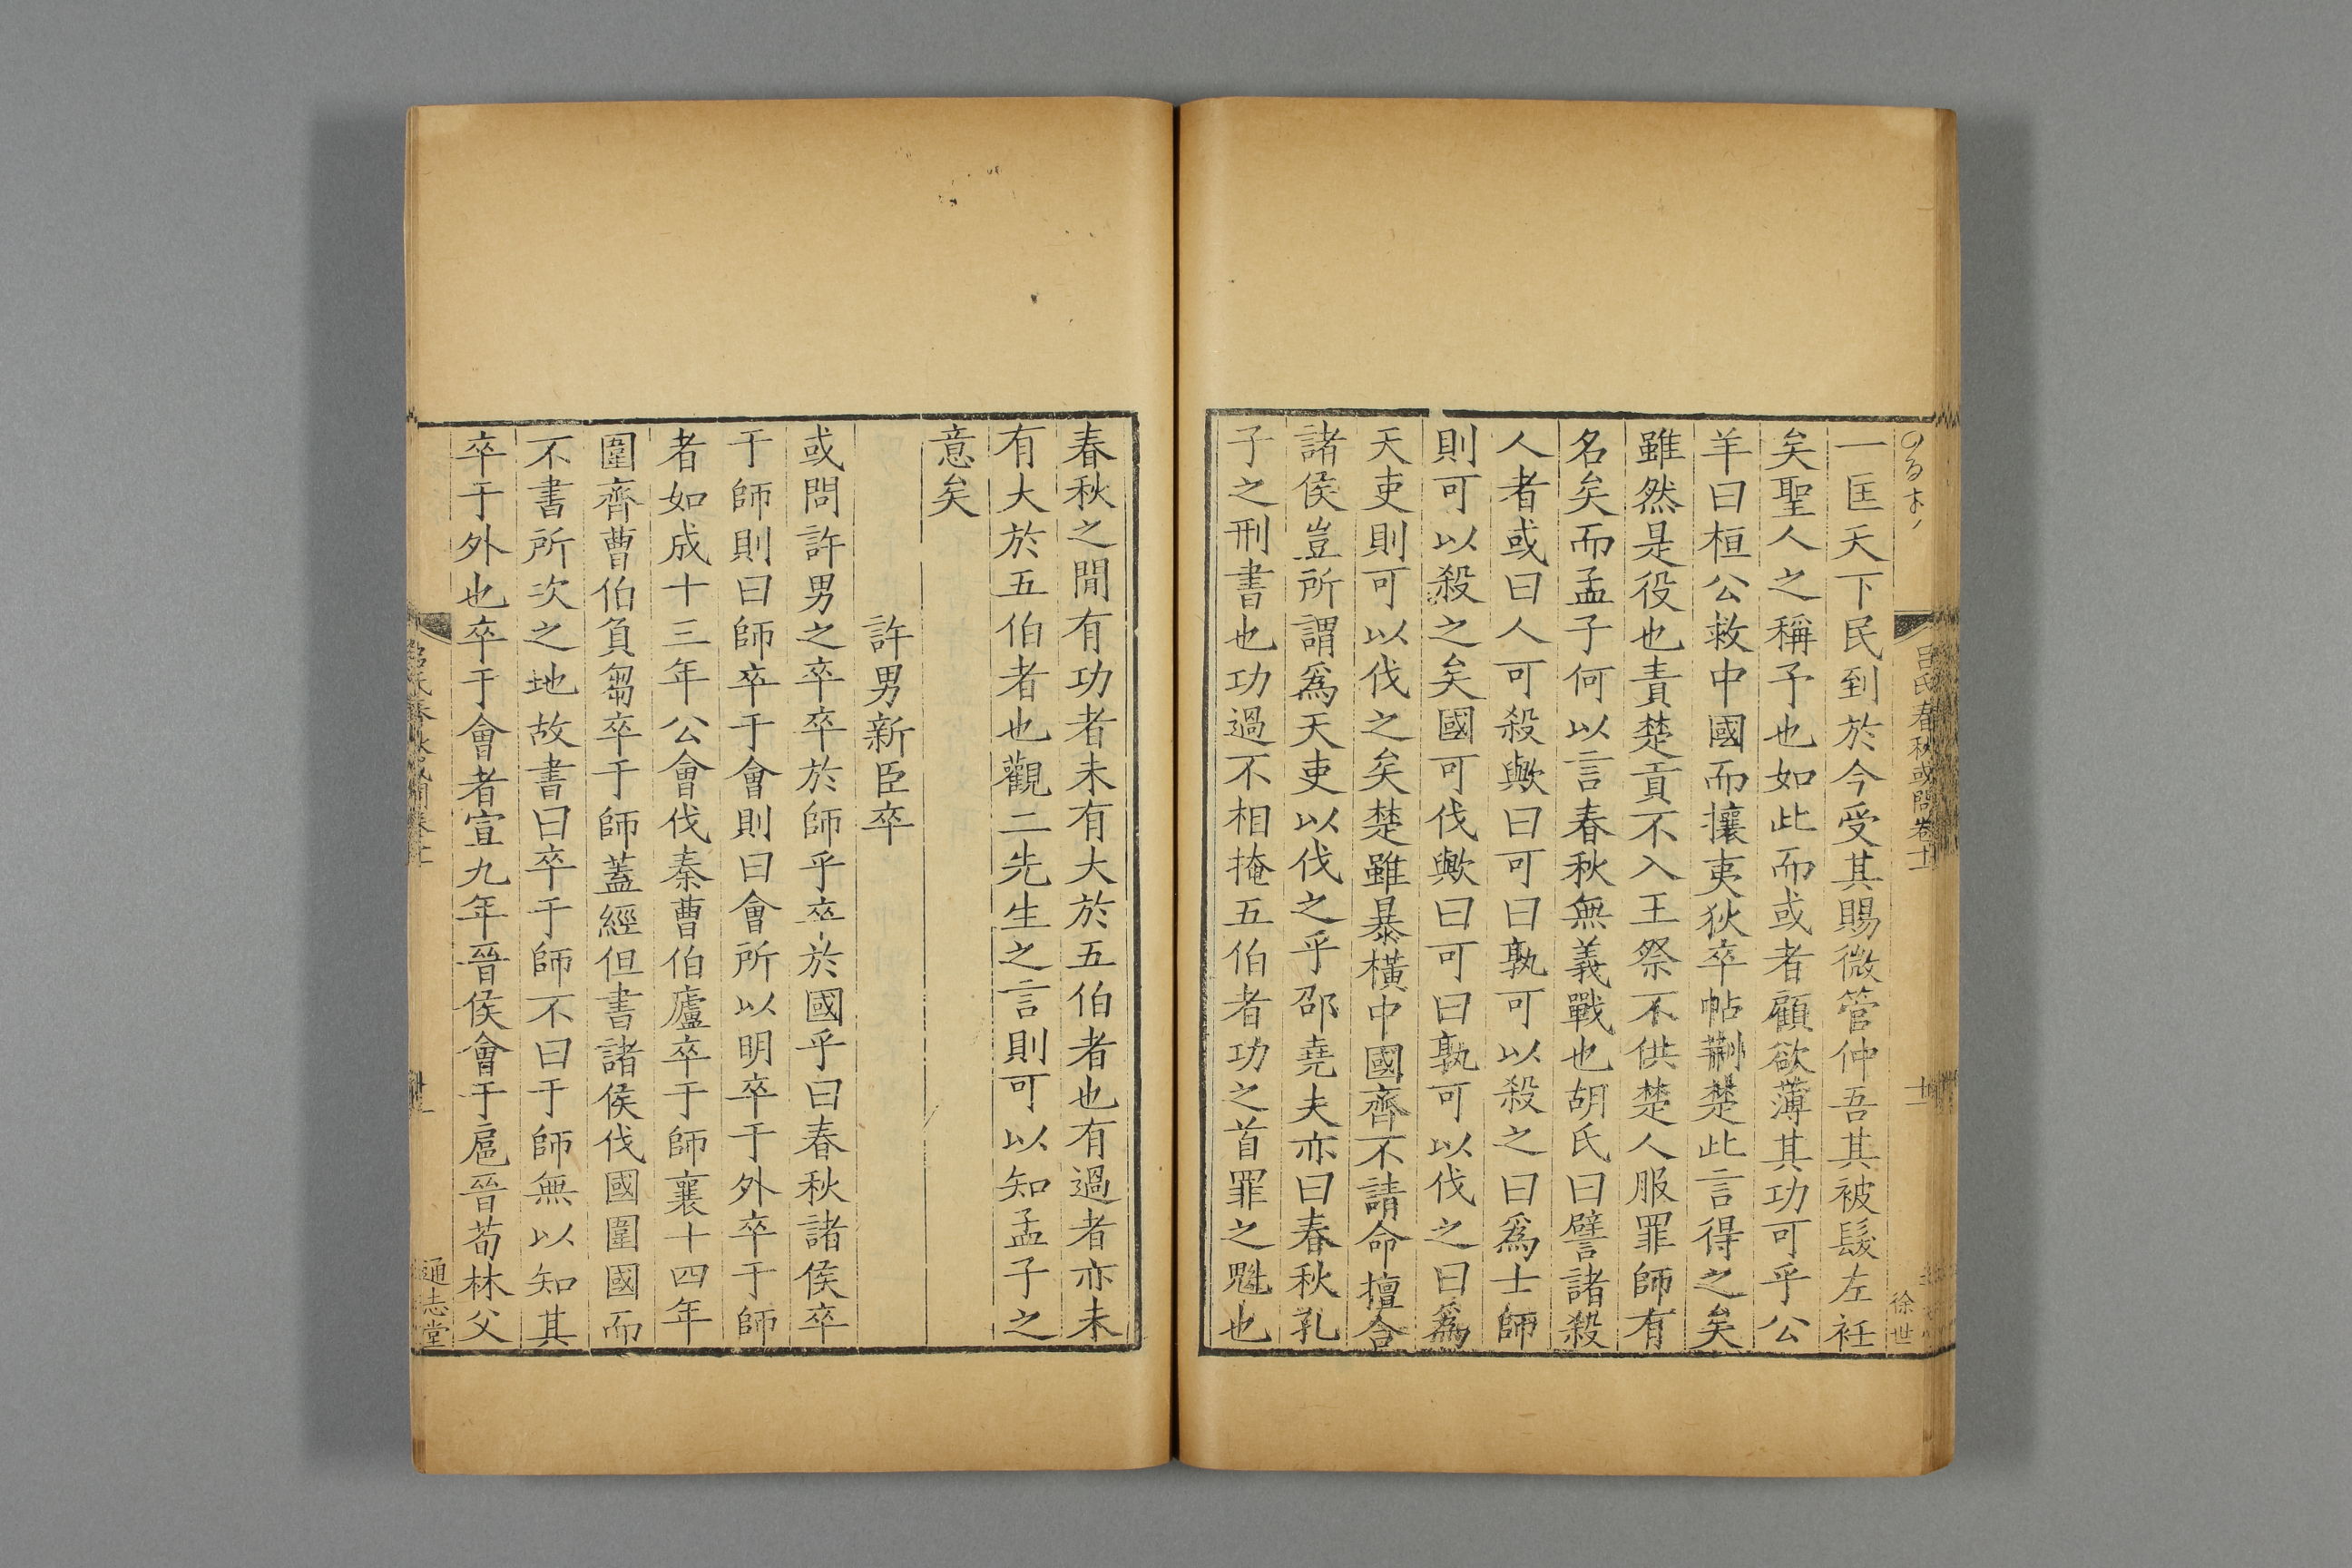 一匡天下民到於今受其賜微管仲吾其被髮左衽
矣聖人之稱予也如此而或者顧欲薄其功可乎公
羊曰桓公救中國而攘夷狄卒帖荆楚此言得之矣
雖然是役也責楚貢不入王祭不供楚人服罪師有
名矣而孟子何以言春秋無義戰也胡氏曰譬諸殺
人者或曰人可殺歟曰可曰孰可以殺之曰爲士師
則可以殺之矣國可伐歟曰可曰孰可以伐之曰爲
天吏則可以伐之矣楚雖暴橫中國齊不請命擅合
諸侯豈所謂爲天吏以伐之乎邵堯夫亦曰春秋孔
子之刑書也功過不相掩五伯者功之首罪之魁也
春秋之閒有功者未有大於五伯者也有過者亦未
有大於五伯者也觀二先生之言則可以知孟子之
意矣
許男新臣卒
或問許男之卒卒於師乎卒於國乎曰春秋諸侯卒
于師則曰師卒于會則曰會所以明卒于外卒于師
者如成十三年公會伐秦曹伯廬卒于師襄十四年
圍齊曹伯負芻卒于師蓋經但書諸侯伐國圍國而
不書所次之地故書曰卒于師不曰于師無以知其
卒于外也卒于會者宣九年晉侯會于扈晉荀林父
呂氏春秋或問卷十一
徐世
通志堂